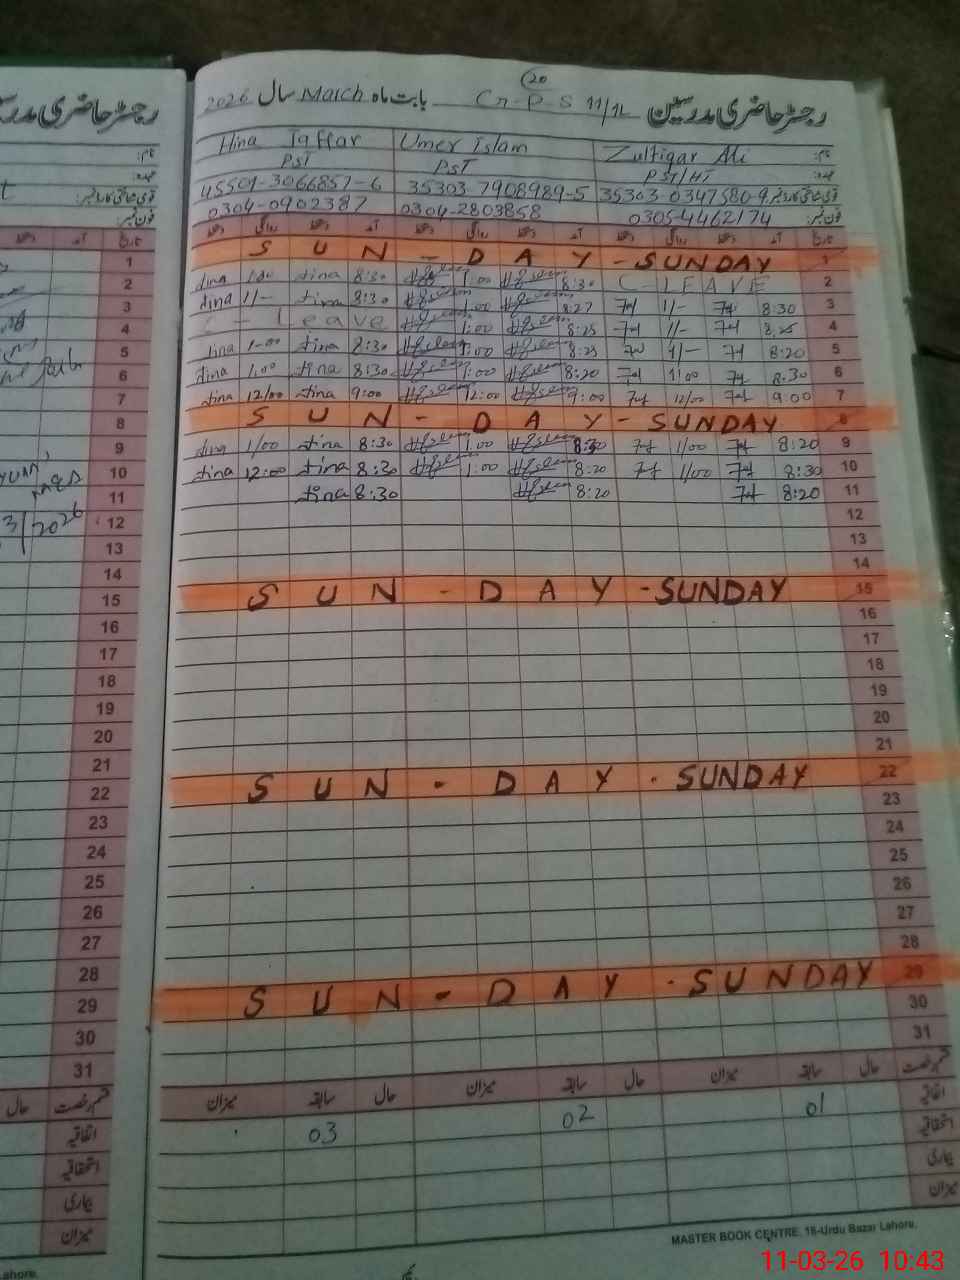 رجسٹر حاضری مدرسین G-P-S 11/1L بابت ماہ March سال 2026
20
نام: Zulfiqar Ali Umer Islam Hina Jaffar
عہدہ: PST/HT PST PST
قومی شناختی کارڈ نمبر: 35303-0347580-9 35303-7908989-5 45501-3066857-6
فون نمبر: 0305-4462174 0304-2803858 0304-0902387
تاریخ آمد دستخط روانگی دستخط آمد دستخط روانگی دستخط آمد دستخط روانگی دستخط
1 S U N - D A Y - SUNDAY 1
2 Hina 1:00 Hina 8:30 1:00 8:30 C-LEAVE 2
3 Hina 1/- Hina 8:30 1:00 8:27 1/- 8:30 3
4 C - Leave 1:00 8:25 1/- 8:25 4
5 Hina 1-00 Hina 8:30 1:00 8:25 1/- 8:20 5
6 Hina 1:00 Hina 8:30 1:00 8:20 1:00 8:30 6
7 Hina 12/00 Hina 9:00 12:00 9:00 12/00 9:00 7
8 S U N - D A Y - SUNDAY 8
9 Hina 1/00 Hina 8:30 1:00 8:30 1/00 8:20 9
10 Hina 12:00 Hina 8:30 1:00 8:20 1/00 8:30 10
11 Hina 8:30 8:20 8:20 11
12 12
13 13
14 14
15 S U N - D A Y - SUNDAY 15
16 16
17 17
18 18
19 19
20 20
21 21
22 S U N - D A Y - SUNDAY 22
23 23
24 24
25 25
26 26
27 27
28 28
29 S U N - D A Y - SUNDAY 29
30 30
31 31
قسم رخصت حال سابقہ میزان حال سابقہ میزان حال سابقہ میزان
اتفاقیہ 01 02 03
استحقاقیہ
بیماری
میزان
MASTER BOOK CENTRE. 16-Urdu Bazar Lahore.
11-03-26 10:43